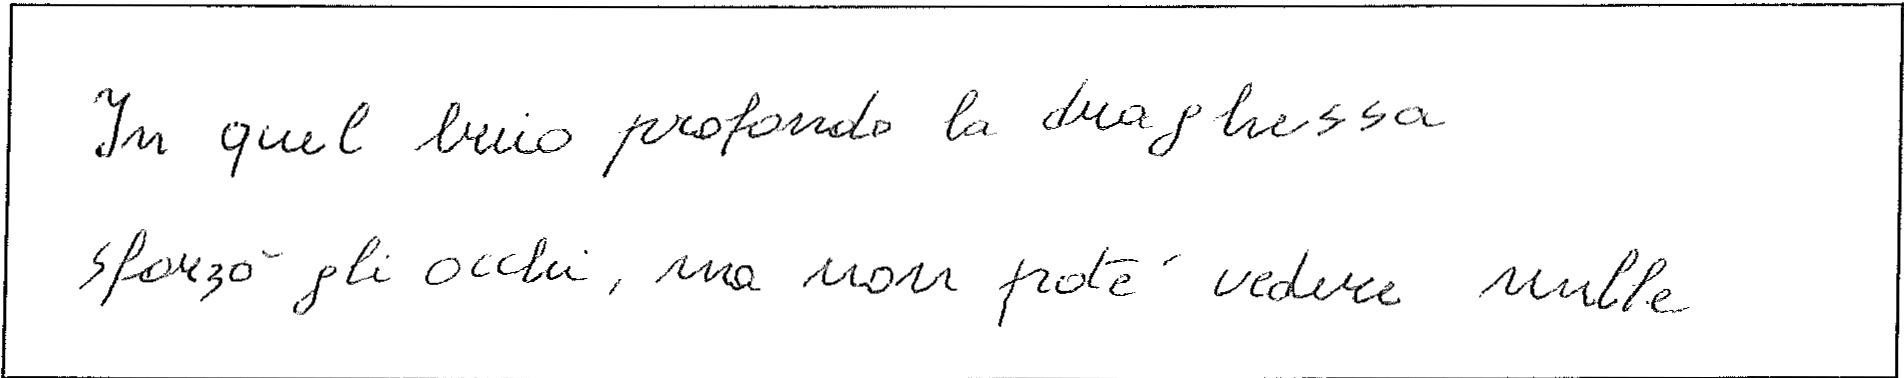 In quel buio profondo la draghessa
sforzò gli occhi, ma non poté vedere nulla